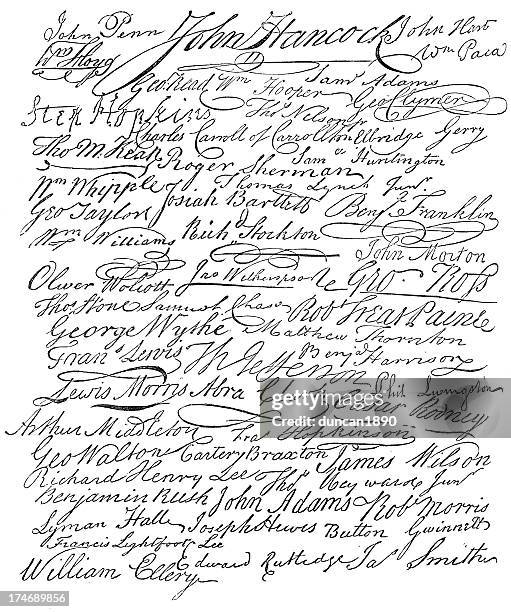 John Penn John Hancock John Hart
Wm Floyd Wm Paca
Geo Read Wm Hooper Sam Adams
Step Hopkins Thos Nelson Jr Geo Clymer
Charles Carroll of Carrollton Elbridge Gerry
Tho M. Kean Roger Sherman Sam Huntington
Wm Whipple Thomas Lynch Junr.
Geo Taylor Josiah Bartlett Benj Franklin
Wm Williams Rich Stockton
John Morton
Oliver Wolcott Jno Witherspoon Geo. Ross
Thos Stone Samuel Chase Rob Treat Paine
George Wythe Matthew Thornton
Frans Lewis Th Jefferson Benj Harrison
Lewis Morris Abra Clark Phil Livingston
Caesar Rodney
Arthur Middleton Fras Hopkinson
Geo Walton Carter Braxton James Wilson
Richard Henry Lee Thos Heyward Junr
Benjamin Rush John Adams Rob Morris
Lyman Hall Joseph Hewes Button Gwinnett
Francis Lightfoot Lee
William Ellery Edward Rutledge Ja Smith
gettyimages
duncan1890
174689856